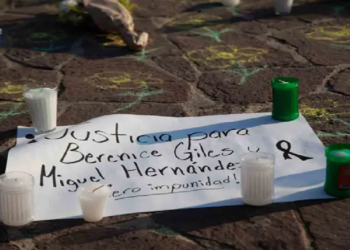 Justicia para
Berenice Giles y
Miguel Hernánde
ero impunidad!